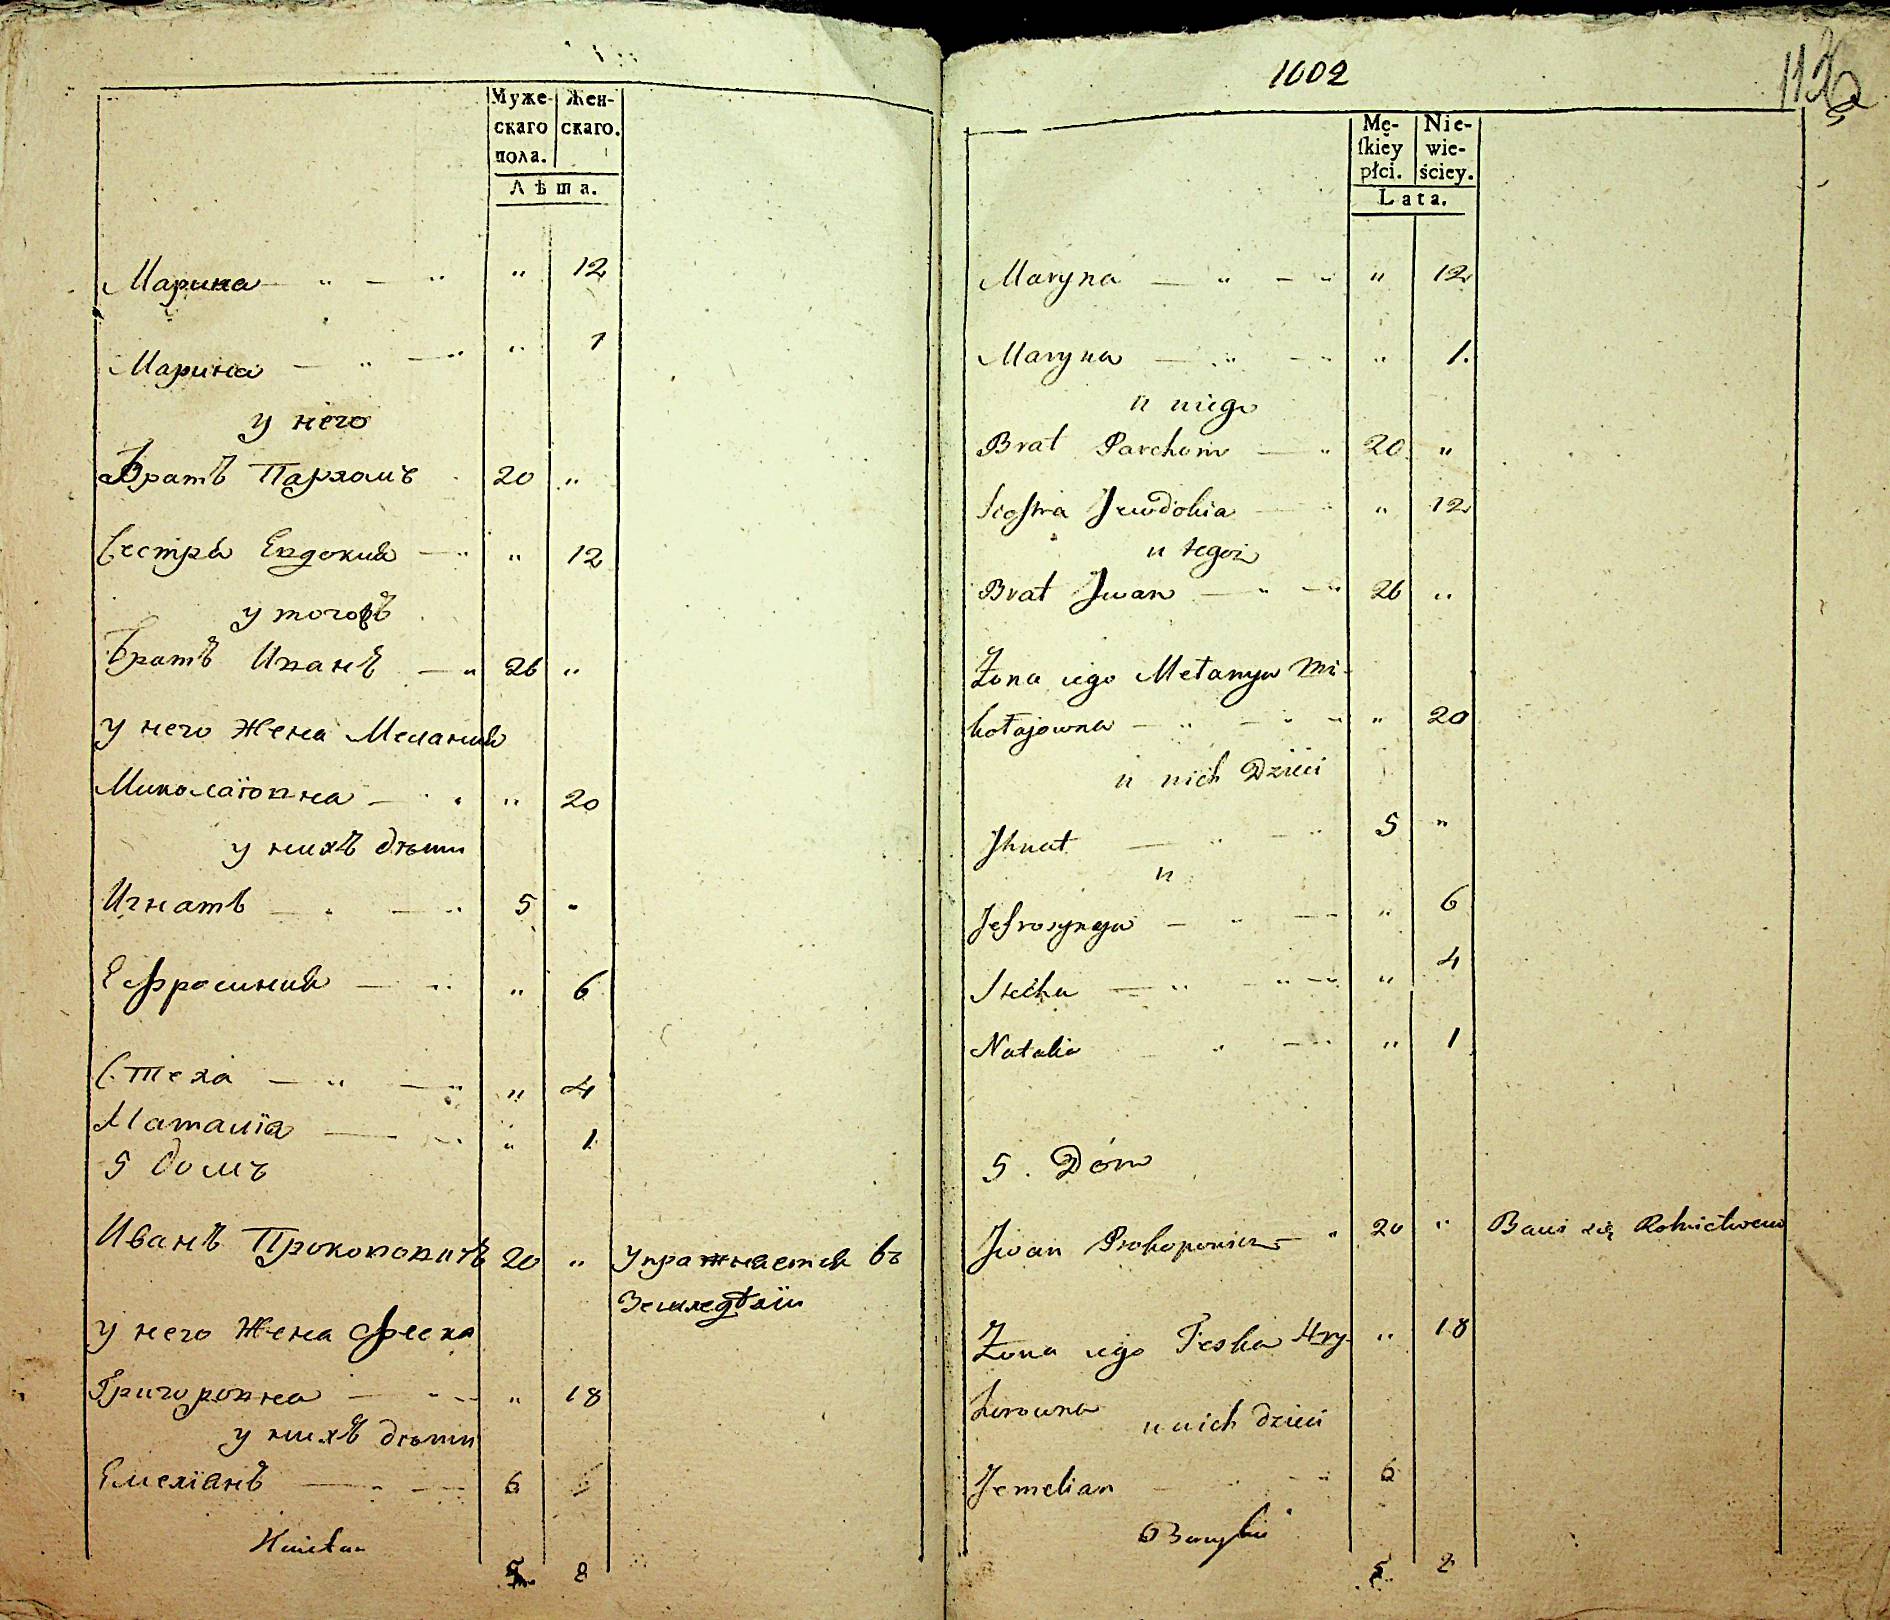 Муже-
скаго
пола.
Жен-
скаго.
Лѣта.
Марина — " — " " 12
Марина — " — " " 1
у него
Братъ Пархомъ 20 "
Сестра Евдокия — " " 12
у тогожъ
Братъ Иванъ — " 26 "
у него жена Мелания
Миколаiовна — " " 20
у нихъ дѣти
Игнатъ — " — " 5 "
Ефросиния — " " 6
Стеха — " — " " 4
Наталïа — " " 1
5 домъ
Иванъ Прокоповичъ 20 " Упражняется въ
Земледѣлïи
у него жена Феска
Григоровна — " " 18
у нихъ дѣти
Емелïанъ — " — 6
5 8
1002
Mę-
ſkiey
płci.
Nie-
wie-
ściey.
Lata.
Maryna — " — " " 12
Maryna — " — " " 1.
u niego
Brat Parchom — " 20 "
Siostra Jewdokia — " 12
u tegoż
Brat Jwan — " — " 26 "
Żona iego Mełanya Mi-
kołajowna — " — " " 20
u nich Dzieci
Jhnat — " — " 5 "
u
Jefrosynya — " — " 6
Stecha — " — " " 4
Natalia — " — " " 1
5. Dóm
Jwan Prokopowicz — " 20 " Bawi się Rolnictwem
Żona iego Feska Hry- " 18
horowna
u nich dzieci
Jemelian — " 6
5 8